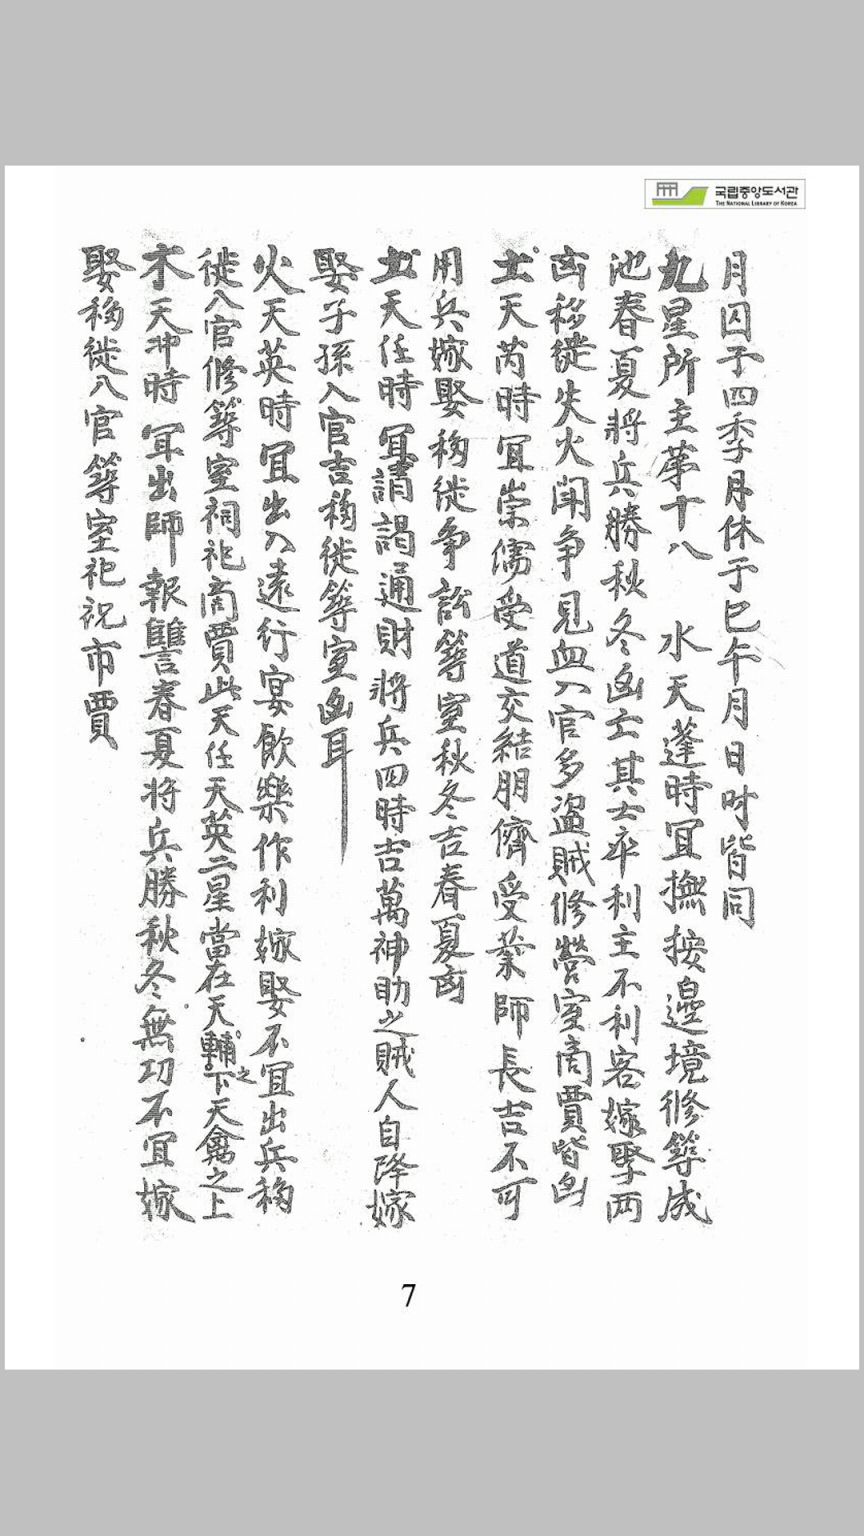 국립중앙도서관
THE NATIONAL LIBRARY OF KOREA
月囚于四季月休于巳午月日时皆同
九星所主苐十八 水天蓬時冝撫按邉境修築城
池春夏將兵勝秋冬凶亡其士卒利主不利客嫁娶两
凶移徙失火闘争見血入官多盗賊修營室商賈皆凶
土天芮時冝崇儒受道交結朋儕受業師長吉不可
用兵嫁娶移徙争訟築室秋冬吉春夏凶
土天任時冝請謁通財將兵四時吉萬神助之賊人自降嫁
娶子孫入官吉移徙築室凶耳
火天英時冝出入遠行宴飲樂作利嫁娶不冝出兵移
徙入官修築室祠祀商賈此天任天英二星當在天輔之下天禽之上
木天冲時冝出師報讐春夏將兵勝秋冬無功不冝嫁
娶移徙入官築室祀祝市賈
7